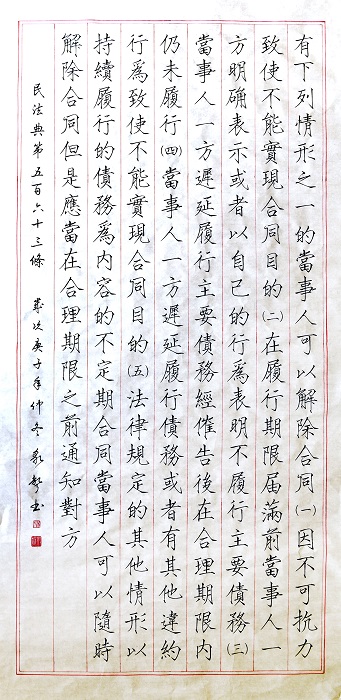 有下列情形之一的當事人可以解除合同㈠因不可抗力
致使不能實現合同目的㈡在履行期限届滿前當事人一
方明确表示或者以自己的行爲表明不履行主要債務㈢
當事人一方遲延履行主要債務經催告後在合理期限内
仍未履行㈣當事人一方遲延履行債務或者有其他違約
行爲致使不能實現合同目的㈤法律規定的其他情形以
持續履行的債務爲内容的不定期合同當事人可以隨時
解除合同但是應當在合理期限之前通知對方
民法典第五百六十三條 歲次庚子年仲冬 書